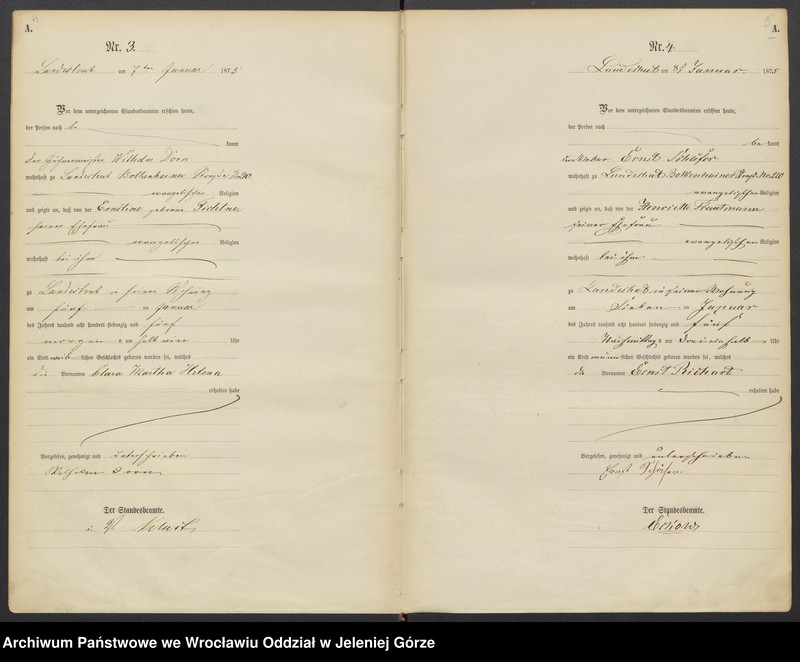 A.
Nr. 3.
Landeshut am 7ten Januar 1875
Vor dem unterzeichneten Standesbeamten erschien heute,
der Person nach be
kannt
der Wilhelm Dorn
wohnhaft zu Landeshut Bolkenhainer
evangelischer Religion
und zeigte an, daß von der Ernstine geborene
seiner Ehefrau
evangelischer Religion
wohnhaft bei ihm
zu Landeshut in seiner
am fünf Januar
des Jahres tausend acht hundert siebenzig und fünf
morgens um halb vier Uhr
ein Kind weib lichen Geschlechts geboren worden sei, welches
die Vornamen Clara Martha Helena
erhalten habe
Vorgelesen, genehmigt und unterschrieben
Wilhelm Dorn
Der Standesbeamte.
5
A.
Nr. 4.
Landeshut am 8t Januar 1875
Vor dem unterzeichneten Standesbeamten erschien heute,
der Person nach
be kannt
der Weber Ernst Schäfer
wohnhaft zu Landeshut Bolkenhainer No 210
evangelischer Religion
und zeigte an, daß von der Henriette
seiner Ehefrau
evangelischer Religion
wohnhaft bei ihm
zu Landeshut in seiner Wohnung
am Sieben Januar
des Jahres tausend acht hundert siebenzig und fünf
Nachmittag um Uhr
ein Kind männlichen Geschlechts geboren worden sei, welches
die Vornamen Ernst Richart
erhalten habe
Vorgelesen, genehmigt und unterschrieben
Ernst Schäfer
Der Standesbeamte.
Archiwum Państwowe we Wrocławiu Oddział w Jeleniej Górze